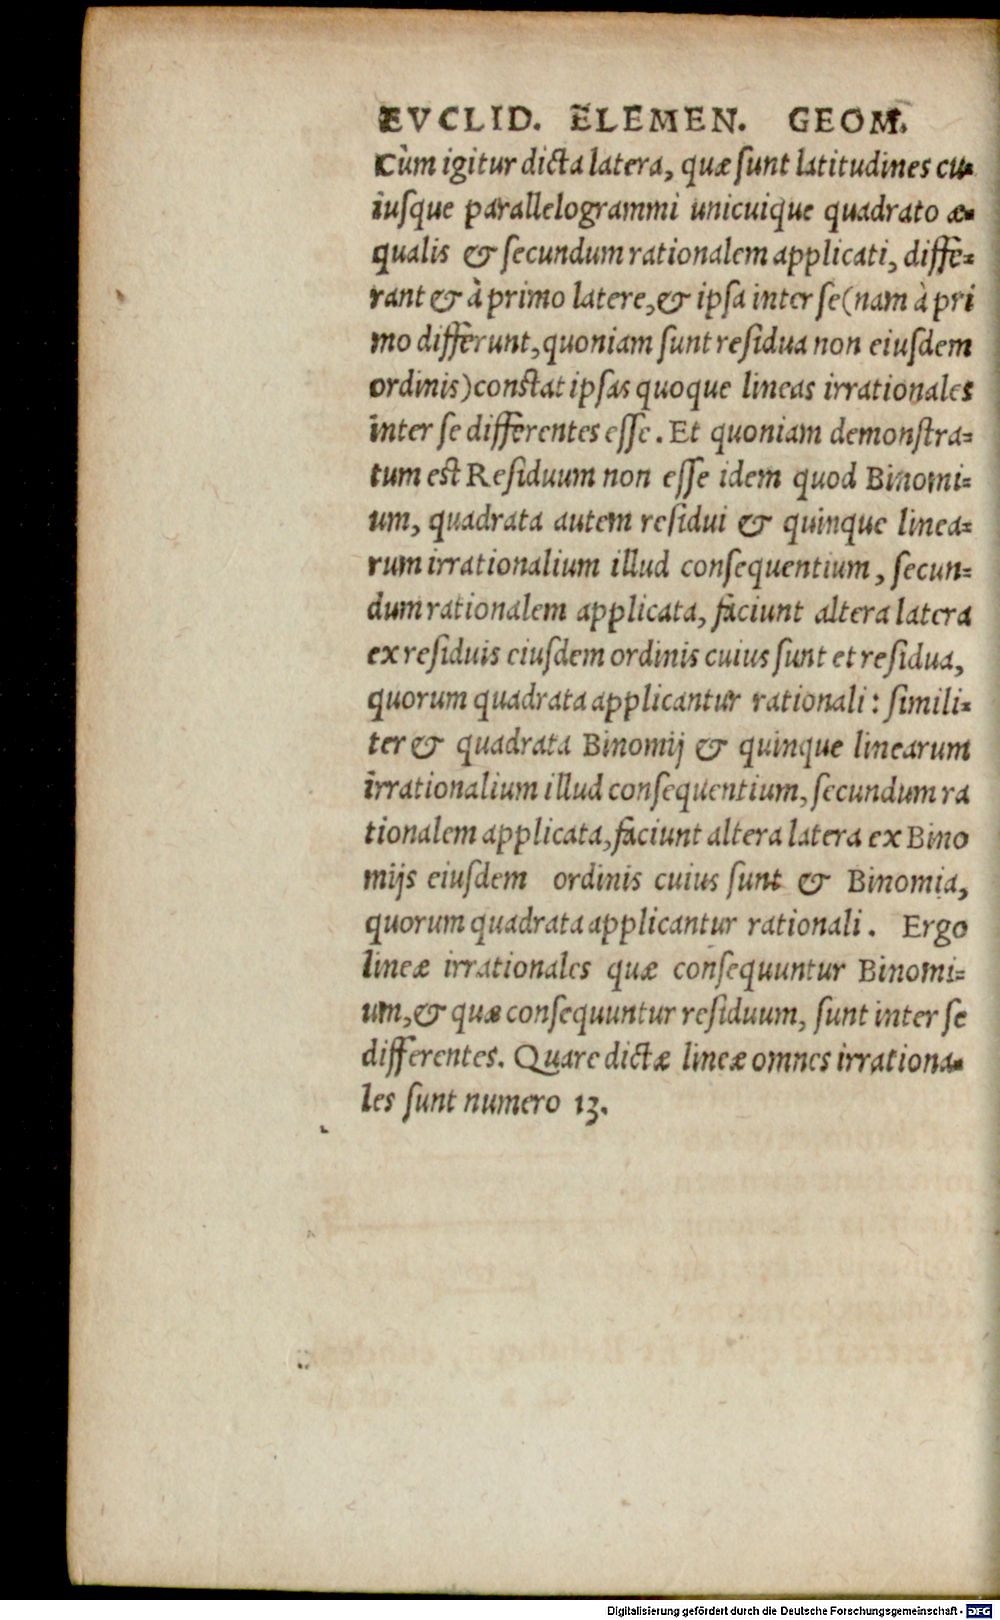 EVCLID. ELEMEN. GEOM.
Cùm igitur dicta latera, quæ ſunt latitudines cu-
iuſque parallelogrammi unicuique quadrato æ-
qualis & ſecundum rationalem applicati, diffe-
rant & à primo latere, & ipſa inter ſe (nam à pri
mo differunt, quoniam ſunt reſidua non eiuſdem
ordinis) conſtat ipſas quoque lineas irrationales
inter ſe differentes eſſe. Et quoniam demonſtra-
tum est Reſiduum non eſſe idem quod Binomi-
um, quadrata autem reſidui & quinque linea-
rum irrationalium illud conſequentium, ſecun-
dum rationalem applicata, faciunt altera latera
ex reſiduis eiuſdem ordinis cuius ſunt et reſidua,
quorum quadrata applicantur rationali: ſimili-
ter & quadrata Binomij & quinque linearum
irrationalium illud conſequentium, ſecundum ra
tionalem applicata, faciunt altera latera ex Bino
mijs eiuſdem ordinis cuius ſunt & Binomia,
quorum quadrata applicantur rationali. Ergo
lineæ irrationales quæ conſequuntur Binomi-
um, & quæ conſequuntur reſiduum, ſunt inter ſe
differentes. Quare dictæ lineæ omnes irrationa-
les ſunt numero 13.
Digitalisierung gefördert durch die Deutsche Forschungsgemeinschaft - DFG